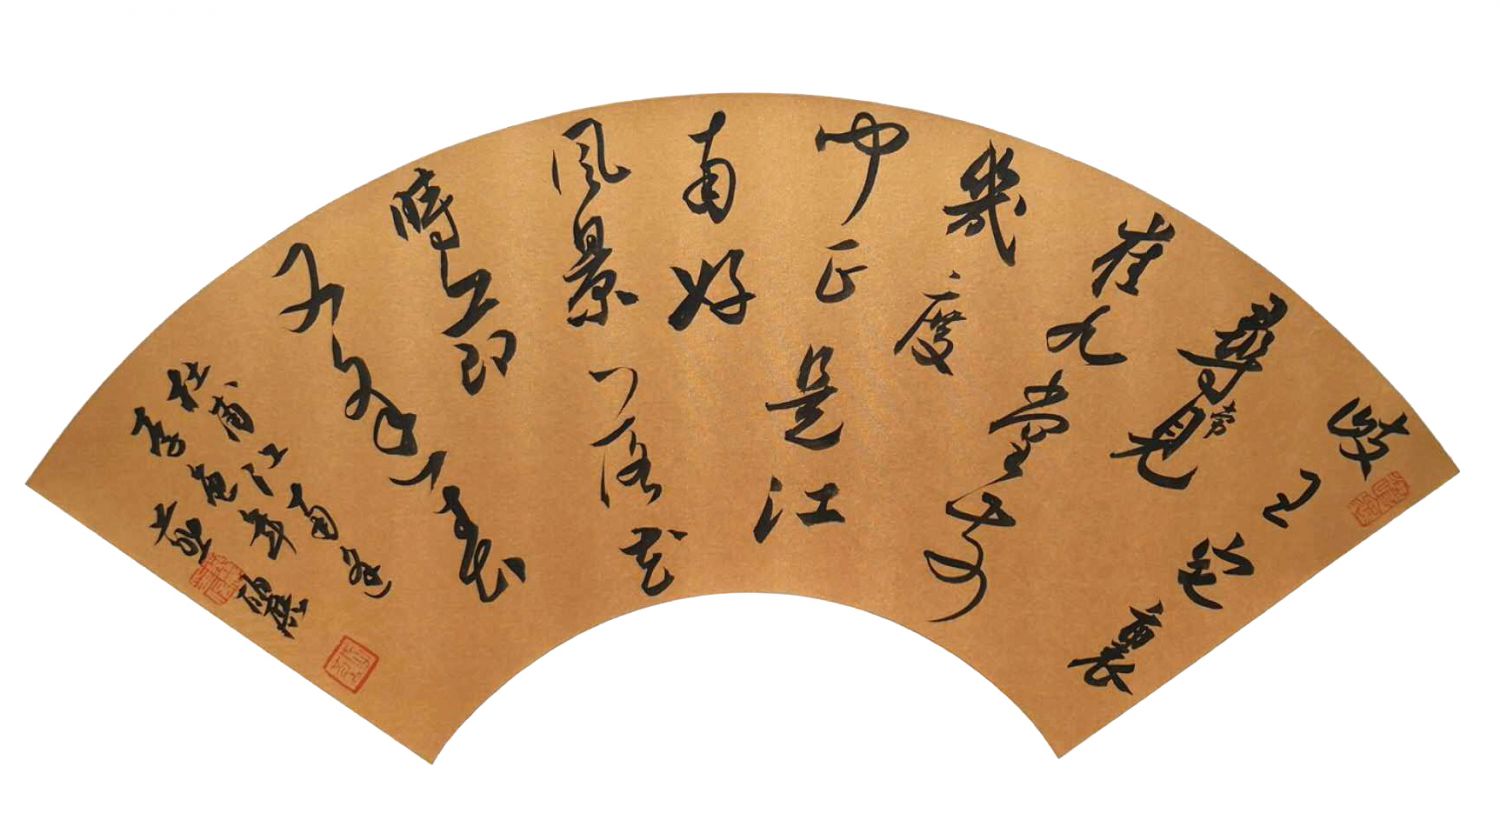 歧王宅裏
尋常見
崔九堂前
幾度
聞正是江
南好
風景落花
時節
又逢君
杜甫江南逢
李龜年